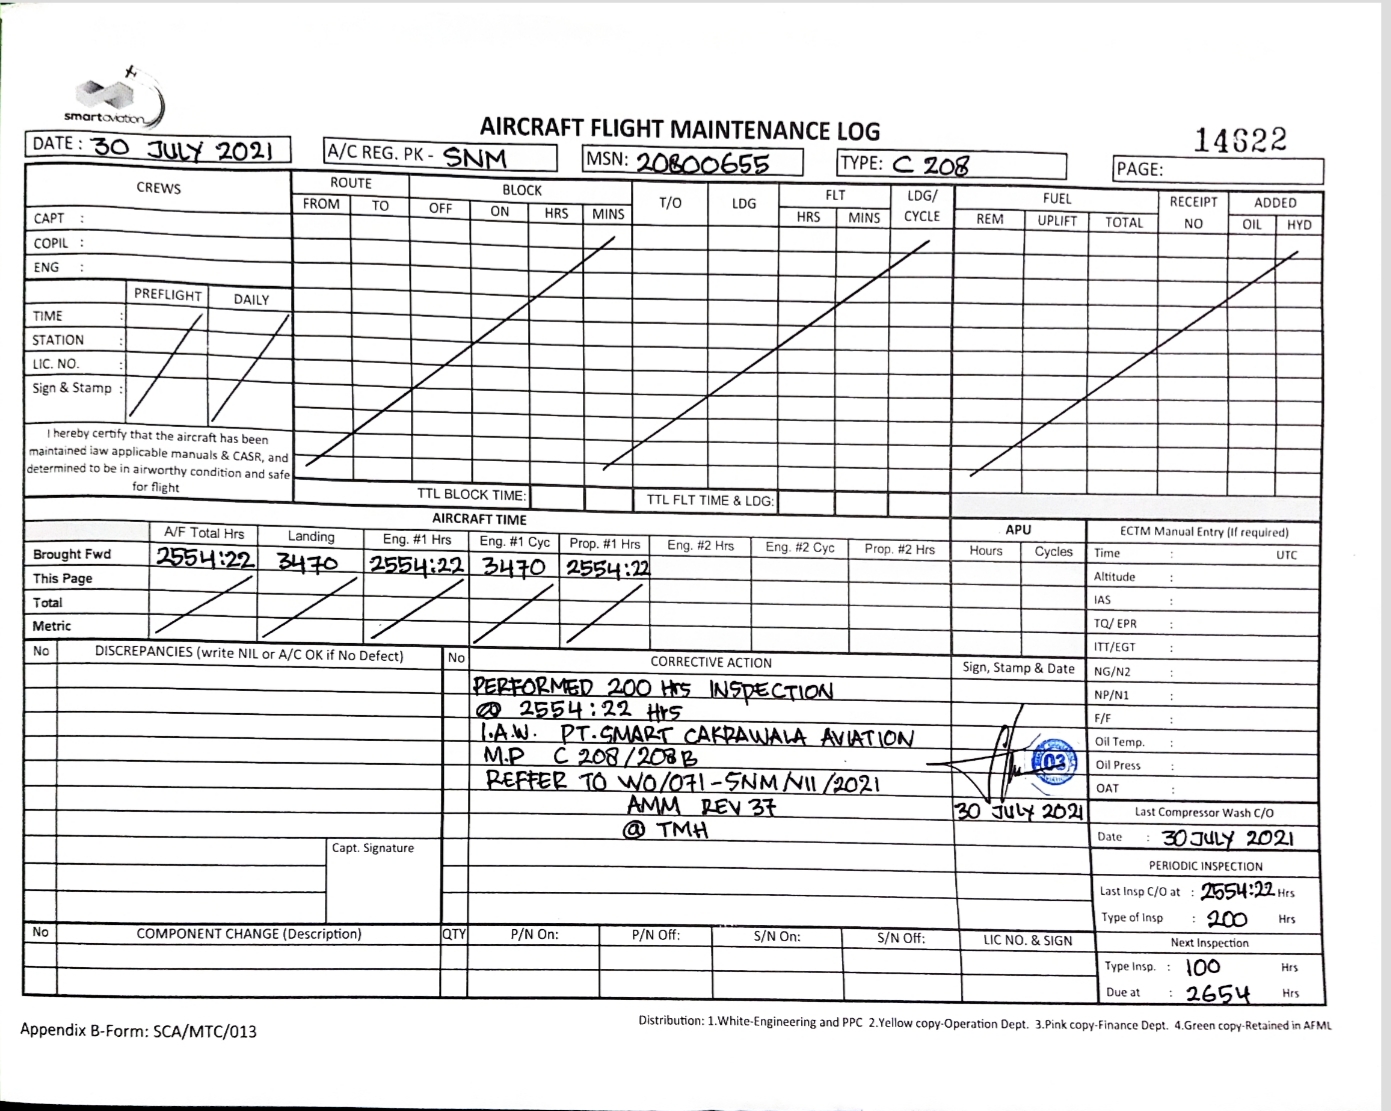 smartaviation
AIRCRAFT FLIGHT MAINTENANCE LOG
14622
DATE : 30 JULY 2021
A/C REG. PK - SNM
MSN: 20800655
TYPE: C 208
PAGE:
CREWS
ROUTE
BLOCK
T/O
LDG
FLT
LDG/
CYCLE
FUEL
RECEIPT
NO
ADDED
FROM TO OFF ON HRS MINS
HRS MINS
REM UPLIFT TOTAL
OIL HYD
CAPT :
COPIL :
ENG :
PREFLIGHT DAILY
TIME :
STATION :
LIC. NO. :
Sign & Stamp :
I hereby certify that the aircraft has been
maintained iaw applicable manuals & CASR, and
determined to be in airworthy condition and safe
for flight
TTL BLOCK TIME:
TTL FLT TIME & LDG:
AIRCRAFT TIME
APU
ECTM Manual Entry (If required)
A/F Total Hrs Landing Eng. #1 Hrs Eng. #1 Cyc Prop. #1 Hrs Eng. #2 Hrs Eng. #2 Cyc Prop. #2 Hrs Hours Cycles
Brought Fwd 2554:22 3470 2554:22 3470 2554:22
This Page
Total
Metric
Time : UTC
Altitude :
IAS :
TQ/ EPR :
ITT/EGT :
NG/N2 :
NP/N1 :
F/F :
Oil Temp. :
Oil Press :
OAT :
No DISCREPANCIES (write NIL or A/C OK if No Defect) No CORRECTIVE ACTION Sign, Stamp & Date
PERFORMED 200 HRS INSPECTION
@ 2554:22 HRS
I.A.W. PT.SMART CAKRAWALA AVIATION
M.P C 208/208B
REFFER TO WO/071-SNM/VII/2021
AMM REV 37
@ TMH
03
30 JULY 2021
Capt. Signature
Last Compressor Wash C/O
Date : 30 JULY 2021
PERIODIC INSPECTION
Last Insp C/O at : 2554:22 Hrs
Type of Insp : 200 Hrs
Next Inspection
Type Insp. : 100 Hrs
Due at : 2654 Hrs
No COMPONENT CHANGE (Description) QTY P/N On: P/N Off: S/N On: S/N Off: LIC NO. & SIGN
Appendix B-Form: SCA/MTC/013
Distribution: 1.White-Engineering and PPC 2.Yellow copy-Operation Dept. 3.Pink copy-Finance Dept. 4.Green copy-Retained in AFML